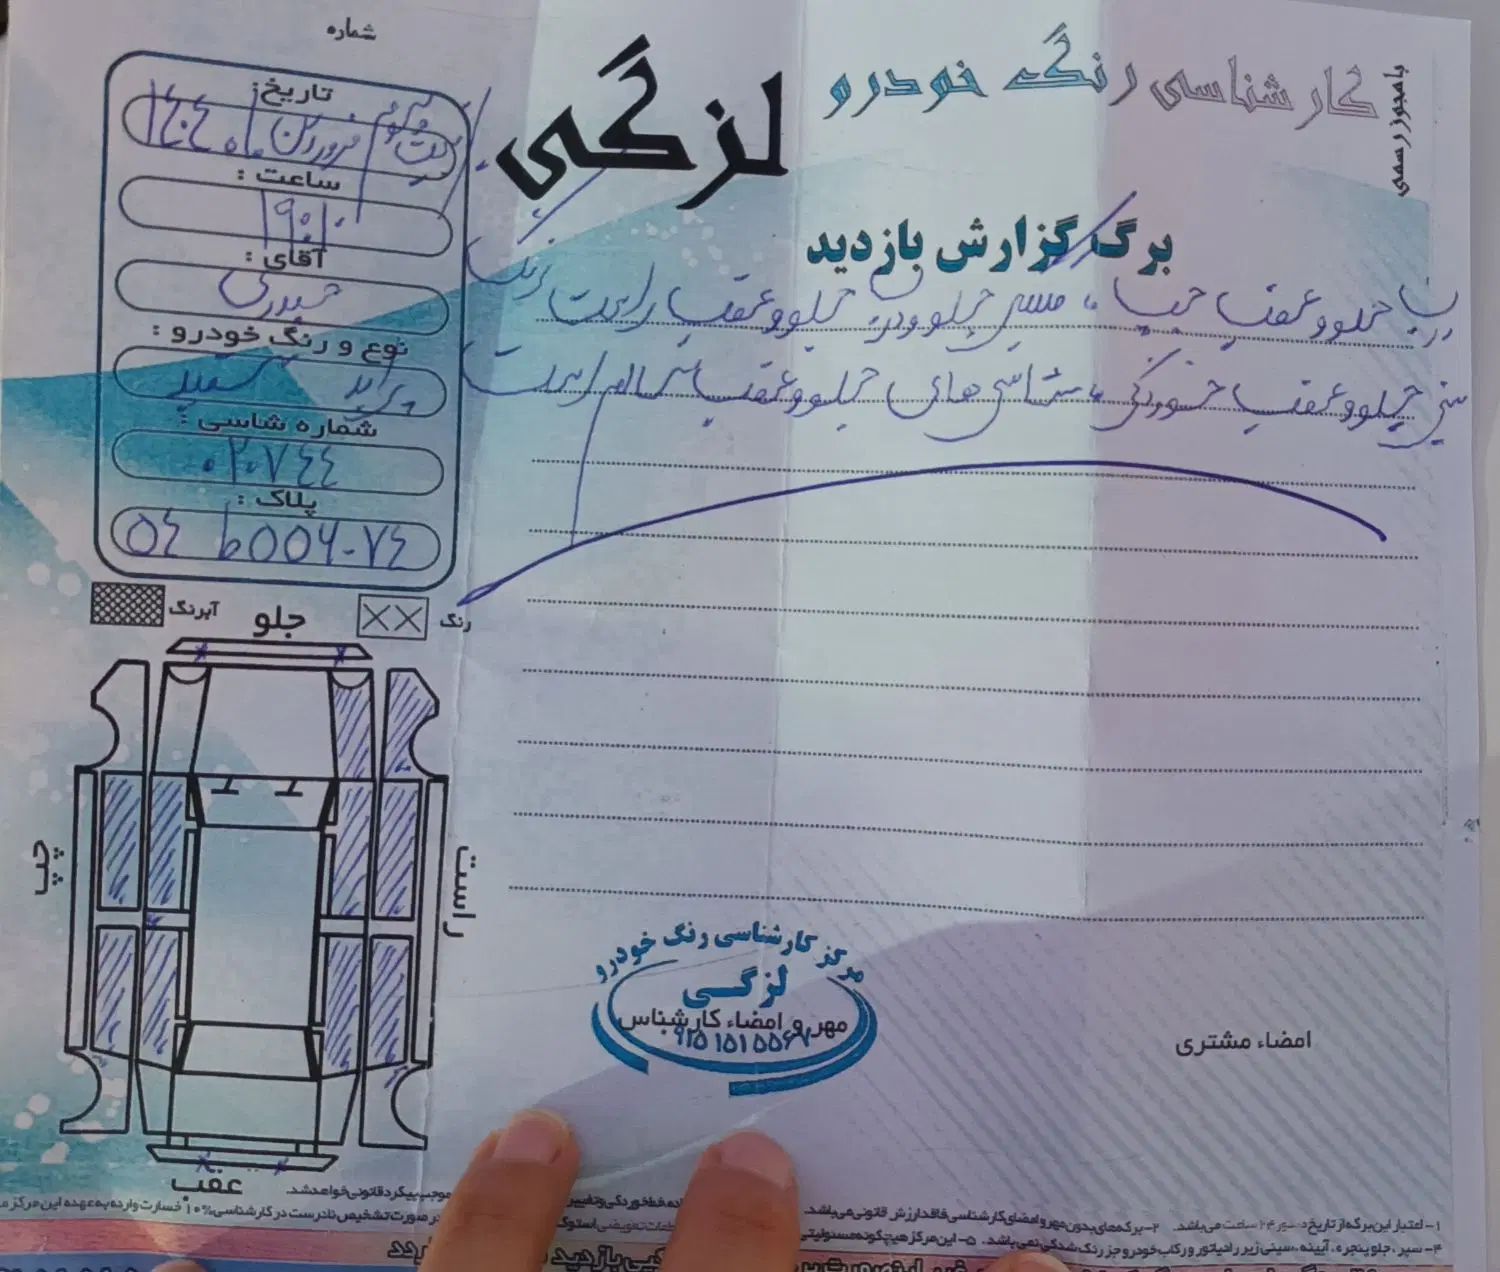 شماره
کارشناسی رنگ خودرو
لزگی
با مجوز رسمی
برگ گزارش بازدید
تاریخ:
بیست و یکم فروردین ماه ۱۴۰۴
ساعت :
۱۹:۱۰
آقای :
حیدری
نوع و رنگ خودرو :
پراید سفید
شماره شاسی :
۰۲۰۷۴۴
پلاک :
۵۴ ط ۵۵۶-۷۴
درب جلو و عقب چپ ، گلگیر جلو و درب جلو و عقب راست رنگ
سینی جلو و عقب خوردگی ، شاسی های جلو و عقب سالم است
آبرنگ
رنگ
جلو
چپ
راست
عقب
مرکز کارشناسی رنگ خودرو
لزگی
مهر و امضاء کارشناس
امضاء مشتری
موجب پیگرد قانونی خواهد شد.
۱- اعتبار این برگه از تاریخ صدور ۲۴ ساعت می‌باشد. ۲- برگه‌های بدون مهر و امضای کارشناسی فاقد ارزش قانونی می‌باشد.
در صورت تشخیص نادرست در کارشناسی ۱۰% خسارت وارده به عهده این مرکز
۴- سپر ، جلو پنجره ، آیینه ، سینی زیر رادیاتور و رکاب خودرو جز رنگ شدگی نمی باشد. ۵- این مرکز هیچگونه مسئولیتی